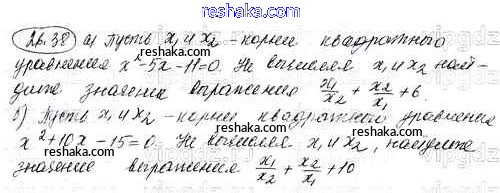 www.pokatake.ru
26.38 а) Пусть x₁ и x₂ - корни квадратного
уравнения x²-5x-11=0. Не вычисляя x₁ и x₂ най-
дите значения выражения x₁/x₂ + x₂/x₁ + 6.
б) Пусть x₁ и x₂ - корни квадратного уравнения
x²+10x-15=0. Не вычисляя x₁ и x₂, найдите
значение выражения x₁/x₂ + x₂/x₁ + 10